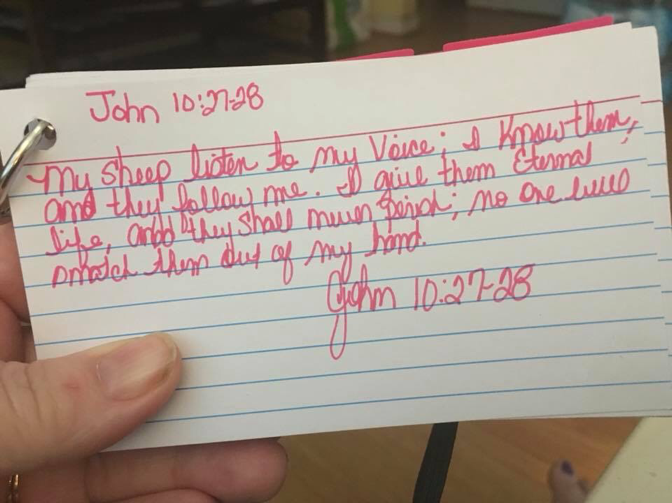 John 10:27-28
My sheep listen to my Voice; I Know them,
and they follow me. I give them Eternal
life, and they shall never perish; no one will
snatch them out of my hand.
John 10:27-28